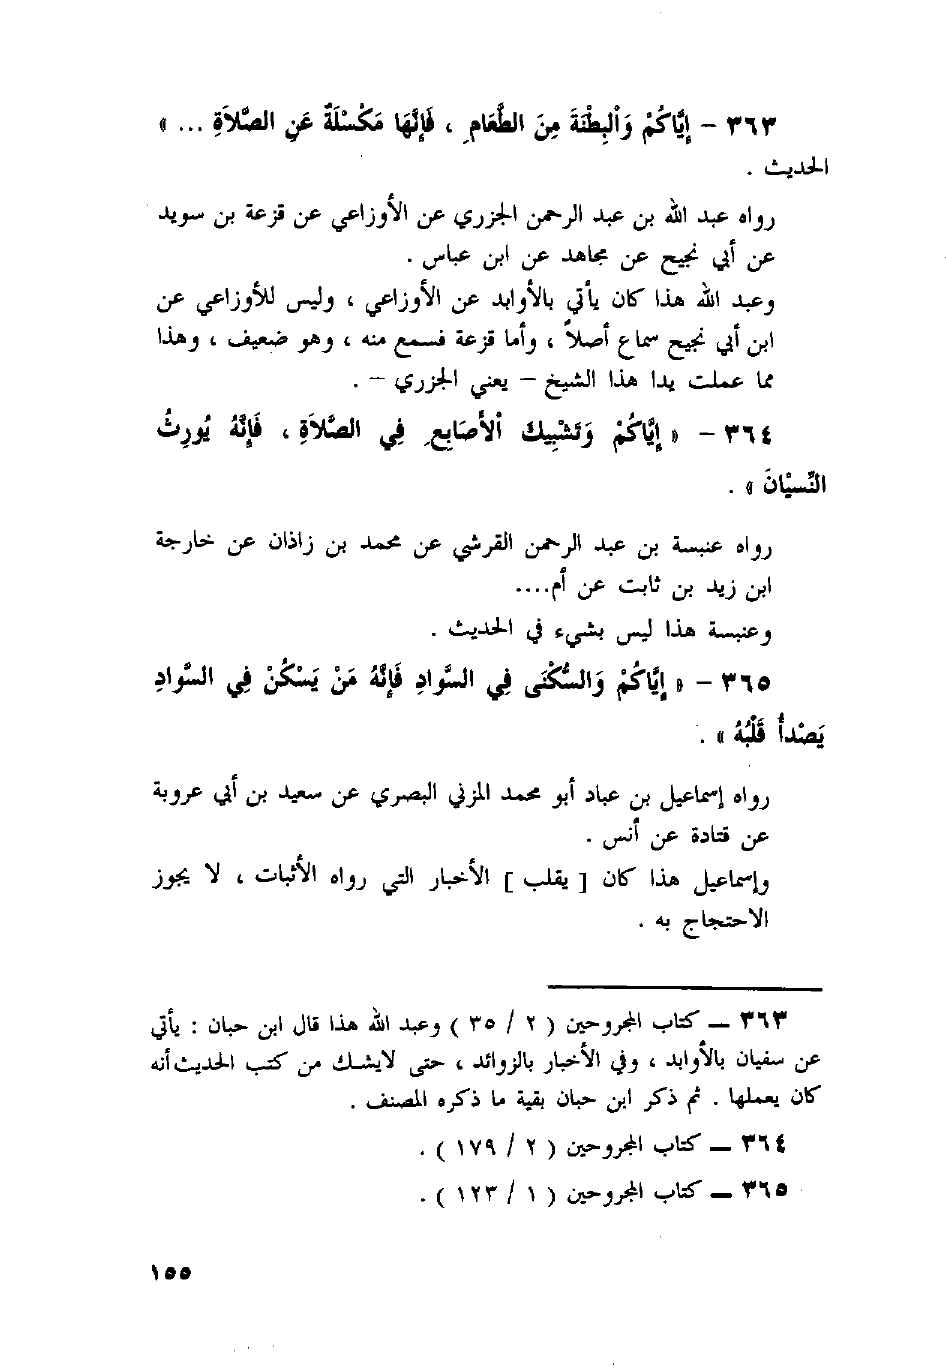 ٣٦٣ – إِيَّاكُمْ وَالْبِطْنَةَ مِنَ الطَّعَامِ ، فَإِنَّهَا مَكْسَلَةٌ عَنِ الصَّلاَةِ ... »
الحديث .
رواه عبد الله بن عبد الرحمن الجزري عن الأوزاعي عن قزعة بن سويد
عن أبي نجيح عن مجاهد عن ابن عباس .
وعبد الله هذا كان يأتي بالأوابد عن الأوزاعي ، وليس للأوزاعي عن
ابن أبي نجيح سماع أصلاً ، وأما قزعة فسمع منه ، وهو ضعيف ، وهذا
مما عملت يدا هذا الشيخ – يعني الجزري – .
٣٦٤ – « إِيَّاكُمْ وَتَشْبِيكَ الأَصَابِعِ فِي الصَّلاَةِ ، فَإِنَّهُ يُورِثُ
النِّسيْانَ » .
رواه عنبسة بن عبد الرحمن القرشي عن محمد بن زاذان عن خارجة
ابن زيد بن ثابت عن أم....
وعنبسة هذا ليس بشيء في الحديث .
٣٦٥ – « إِيَّاكُمْ وَالسُّكْنَى فِي السَّوادِ فَإِنَّهُ مَنْ يَسْكُنْ فِي السَّوادِ
يَصْدأُ قَلْبُهُ » .
رواه إسماعيل بن عباد أبو محمد المزني البصري عن سعيد بن أبي عروبة
عن قتادة عن أنس .
وإسماعيل هذا كان [ يقلب ] الأخبار التي رواه الأثبات ، لا يجوز
الاحتجاج به .
٣٦٣ – كتاب المجروحين ( ٢ / ٣٥ ) وعبد الله هذا قال ابن حبان : يأتي
عن سفيان بالأوابد ، وفي الأخبار بالزوائد ، حتى لايشك من كتب الحديث أنه
كان يعملها . ثم ذكر ابن حبان بقية ما ذكره المصنف .
٣٦٤ – كتاب المجروحين ( ٢ / ١٧٩ ) .
٣٦٥ – كتاب المجروحين ( ١ / ١٢٣ ) .
١٥٥